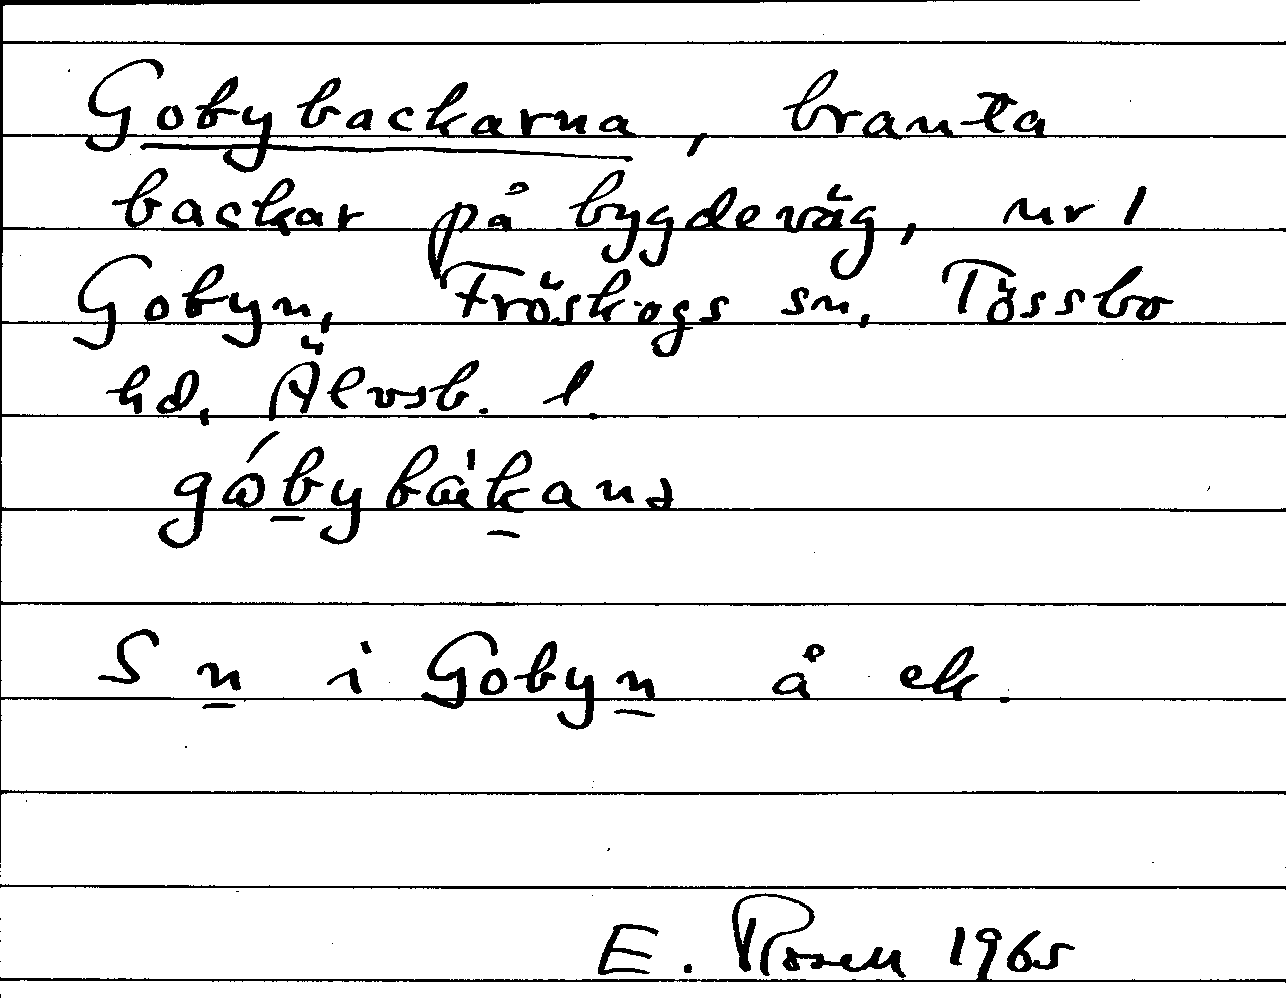 Gobybackarna, branta
backar på bygdeväg, nr 1
Gobyn, Fröskogs sn, Tössbo
hd, Älvsb. l.
S n i Gobyn å ek.
E. Rosen 1965